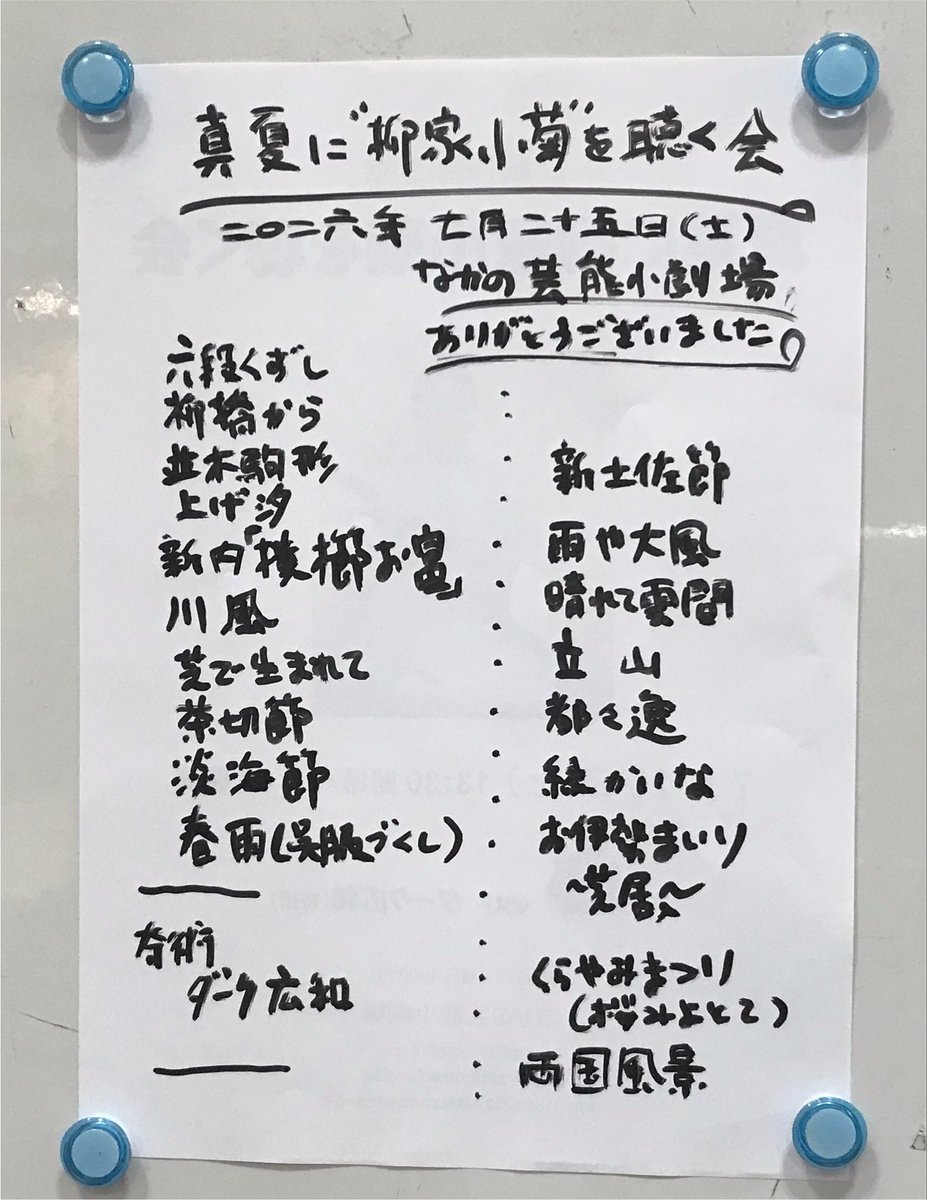 真夏に"柳家小菊"を聴く会
二〇二六年 七月二十五日(土)
なかの芸能小劇場
ありがとうございました
六段くずし
柳橋から
並木駒形
上げ汐
新内「横櫛お富」
川風
芝で生まれて
茶切節
淡海節
春雨(呉服づくし)
奇術
ダーク広和
新土佐節
雨や大風
晴れて雲間
立山
都々逸
緑かいな
お伊勢まいり
〜芝居〜
くらやみまつり
(おつみよとて)
両国風景